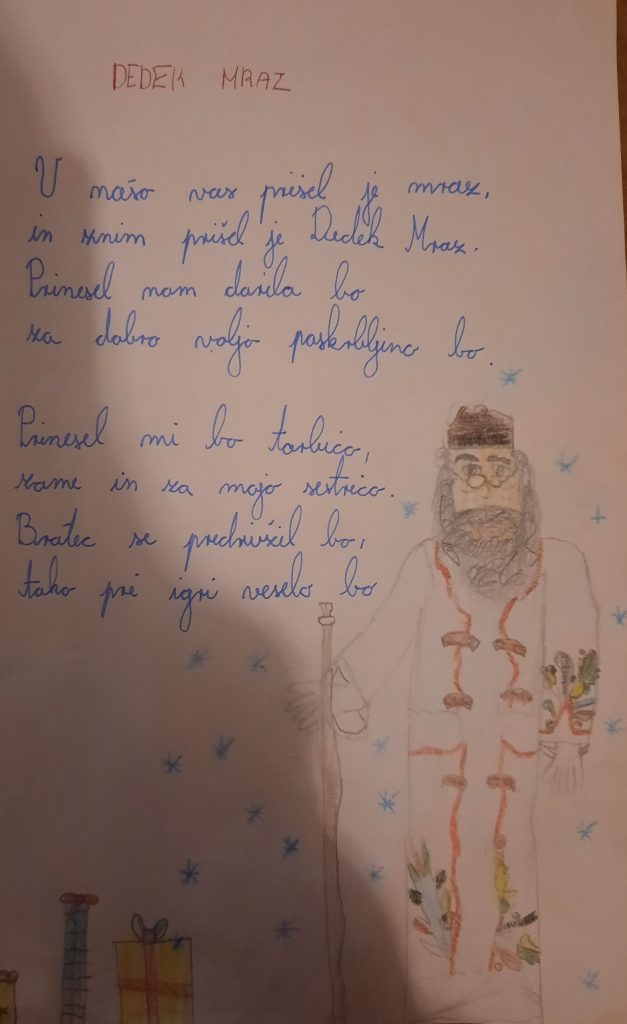 DEDEK MRAZ
V našo vas prišel je mraz,
in znim prišel je Dedek Mraz.
Prinesel nam darila bo
za dobro voljo poskrbljeno bo.
Prinesel mi bo torbico,
zame in za mojo sestrico.
Bratec se pridružil bo,
tako pri igri veselo bo